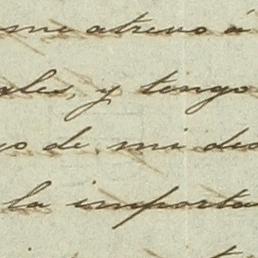 me atrevo á
ales, y tengo
o de mi des
la importa